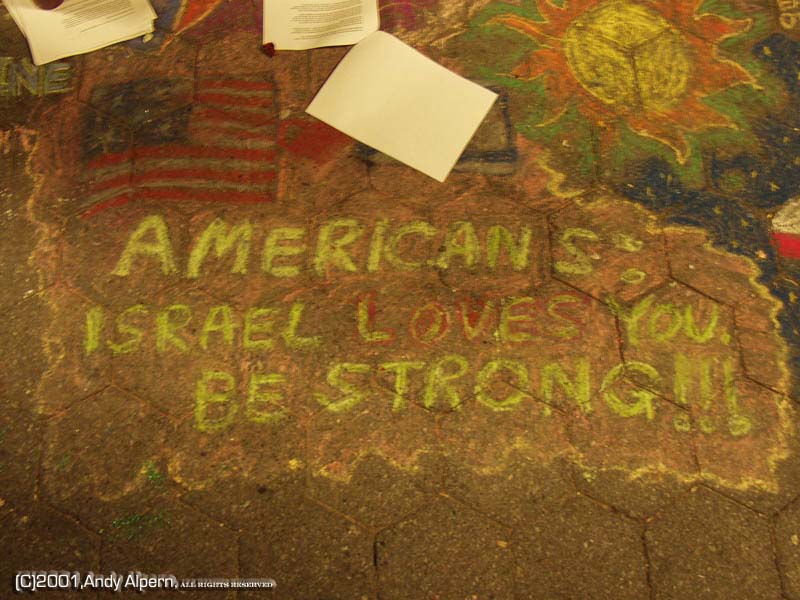 INE
AMERICANS:
ISRAEL LOVES YOU.
BE STRONG!!!
(C)2001,Andy Alpern, ALL RIGHTS RESERVED